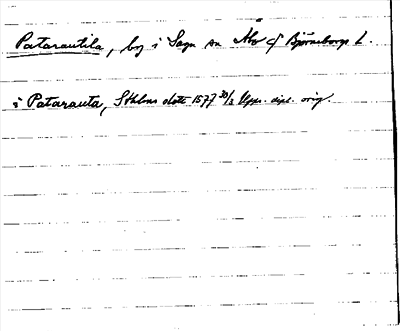 Patarautila, by i Sagu sn Åbo o Björneborgs l.
i Patarauta, Sthlms slott 1577 30/3 Upps. dipl. orig.